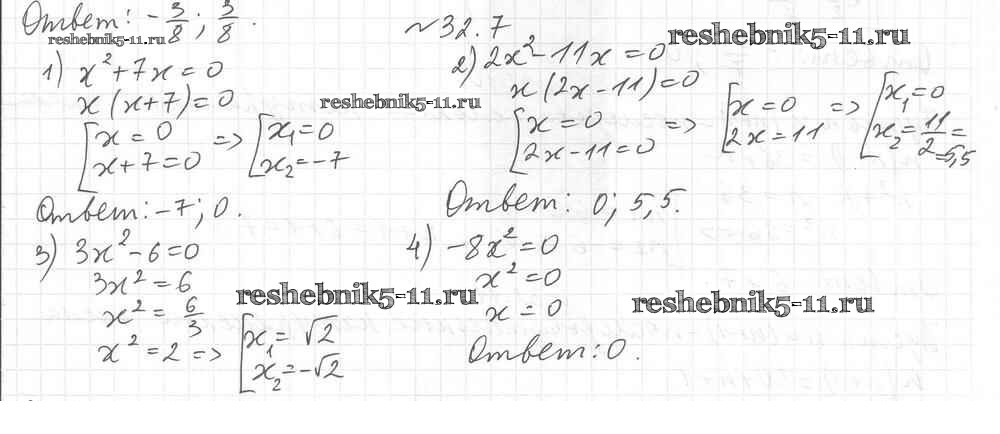 Ответ: -3/8; 3/8.
№32.7
reshebnik5-11.ru
reshebnik5-11.ru
1) x²+7x=0
x(x+7)=0
[x=0 => [x₁=0
x+7=0 x₂=-7
reshebnik5-11.ru
Ответ: -7; 0.
2) 2x²-11x=0
x(2x-11)=0
[x=0 => [x=0 => [x₁=0
2x-11=0 2x=11 x₂=11/2=
=5,5
Ответ: 0; 5,5.
3) 3x²-6=0
3x²=6
x²=6/3
x²=2 => [x₁=√2
x₂=-√2
reshebnik5-11.ru
4) -8x²=0
x²=0
x=0
reshebnik5-11.ru
Ответ: 0.